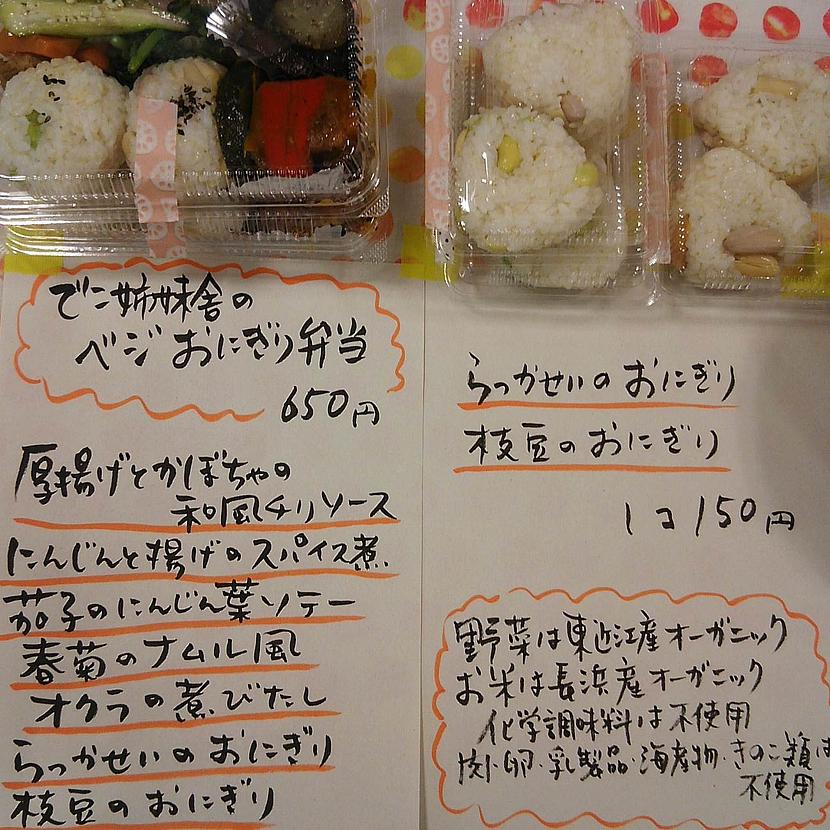 でこ姉妹舎の
ベジおにぎり弁当
650円
厚揚げとかぼちゃの
和風チリソース
にんじんと揚げのスパイス煮
茄子のにんじん葉ソテー
春菊のナムル風
オクラの煮びたし
らっかせいのおにぎり
枝豆のおにぎり
らっかせいのおにぎり
枝豆のおにぎり
1コ150円
野菜は東近江産オーガニック
お米は長浜産オーガニック
化学調味料は不使用
肉・卵・乳製品・海産物・きのこ類は
不使用